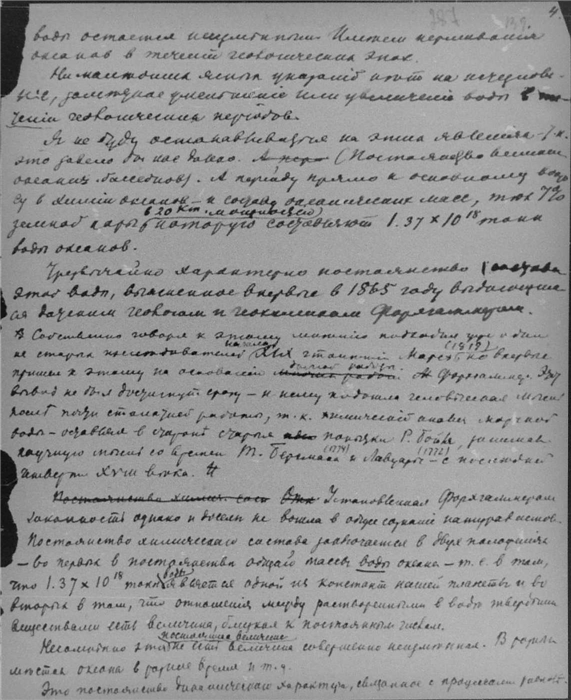 4.
воды остается неизменным. Имеем
океанов в течении геологических эпох.
Ни малейших ясных указаний нет на
заметное уменьшение или увеличение воды в те-
чении геологических периодов.
Я не буду останавливаться на этих явлениях т.к.
это завело бы нас далеко. (Постоянство великих
океанич. бассейнов). А перейду прямо к основному вопро-
су в химии океанов – к составу океанических масс, т.к. 7%
земной коры (в 20 км. мощностью) которую составляют 1.37 × 10^18 тонн
воды океанов.
Чрезвычайно характерно постоянство состава
этой воды, выясненное впервые в 1865 году выдающим-
ся датским геологом и геохимиком Форхгаммером.
Собственно говоря к этому мнению подходил уже один
из старых исследователей начала XIX столетия Марсет (1819) но впервые
пришел к этому на основании долгой работы Форхгаммер. Этот
вывод не был достигнут сразу – к нему подошла человеческая мысль
после почти столетней работы, т.к. химический анализ морской
воды – оставляя в стороне старые попытки Р. Бойля,
научную мысль со времен Т. Бергмана (1774) и Лавуазье (1772) – с последней
четверти XVIII века.
Установленная Форхгаммером
законность однако и доселе не вошла в общее сознание натуралистов.
Постоянство химического состава заключается в двух положениях
– во первых в постоянстве общей массы воды океана – т.е. в том,
что 1.37 × 10^18 тонн воды является одной из констант нашей планеты и во
вторых в том, что отношения между растворенными в воде твердыми
веществами есть величина, близкая к постоянным числам.
Несомненно эта постоянная величина не есть величина совершенно неизменная. В разных
местах океана в разное время и т.д.
Это постоянство динамического характера, связанное с процессами